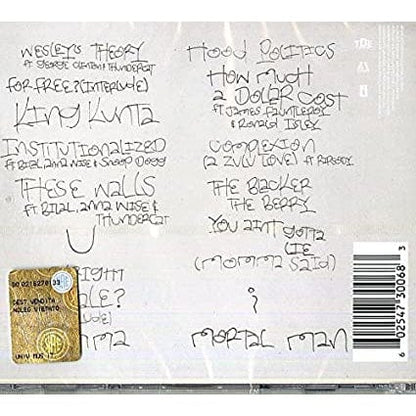 WESLEY'S THEORY
FT GEORGE CLINTON & THUNDERCAT
FOR FREE? (INTERLUDE)
KING KUNTA
INSTITUTIONALIZED
FT BILAL, ANNA WISE & SNOOP DOGG
THESE WALLS
FT BILAL, ANNA WISE &
THUNDERCAT
U
RIGHT
ALE?
UDE)
MMA
HOOD POLITICS
HOW MUCH
A DOLLAR COST
FT JAMES FAUNTLEROY
& RONALD ISLEY
COMPLEXION
(A ZULU LOVE) FT RAPSODY
THE BLACKER
THE BERRY
YOU AINT GOTTA
LIE
(MOMMA SAID)
i
MORTAL MAN
TDE
DEST VENDITA
NOLEG VIETATO
UNIV MUS IT
6 02547 30068 3